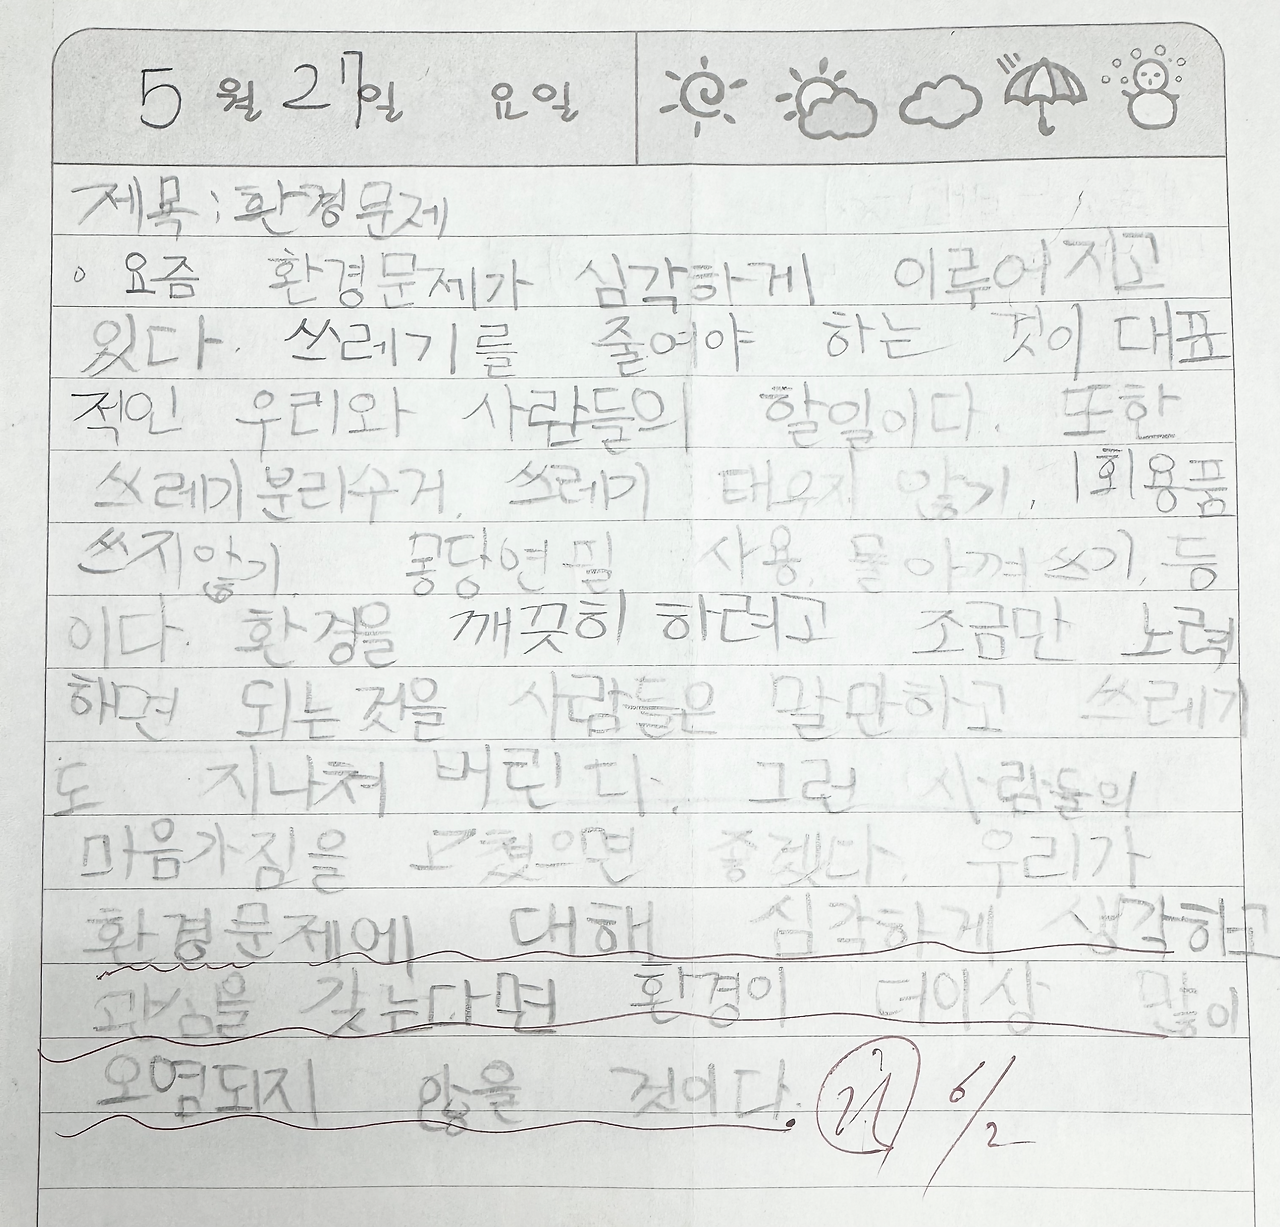 5월 27일 요일
제목: 환경문제
○ 요즘 환경문제가 심각하게 이루어지고
있다. 쓰레기를 줄여야 하는 것이 대표
적인 우리와 사람들의 할일이다. 또한
쓰레기분리수거, 쓰레기 태우지 않기, 1회용품
쓰지않기, 몽당연필 사용, 물 아껴쓰기, 등
이다. 환경을 깨끗히 하려고 조금만 노력
하면 되는것을 사람들은 말만하고 쓰레기
도 지나쳐 버린다. 그런 사람들의
마음가짐을 고쳤으면 좋겠다. 우리가
환경문제에 대해 심각하게 생각하고
관심을 갖는다면 환경이 더이상 많이
오염되지 않을 것이다. 6/2